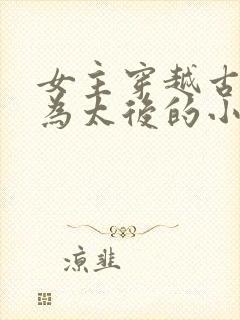 女主穿越古
為太後的小
凉韭